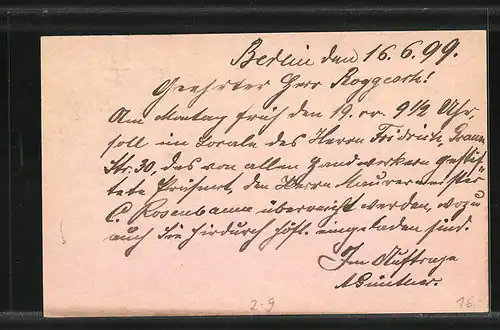 Berlin den 16.6.99.
Geehrter Herr
Am Montag früh den 19. cr. 9 1/2 Uhr
soll im Locale des Herrn Fridrich,
Str. 30, das von allen Handwerkern gestif
tete Präsent, den Herrn Maurermeister
C. Rosenbaum überreicht werden, wozu
auch Sie hirdurch höfl. eingeladen sind.
Im Auftrage
2-9 16.-